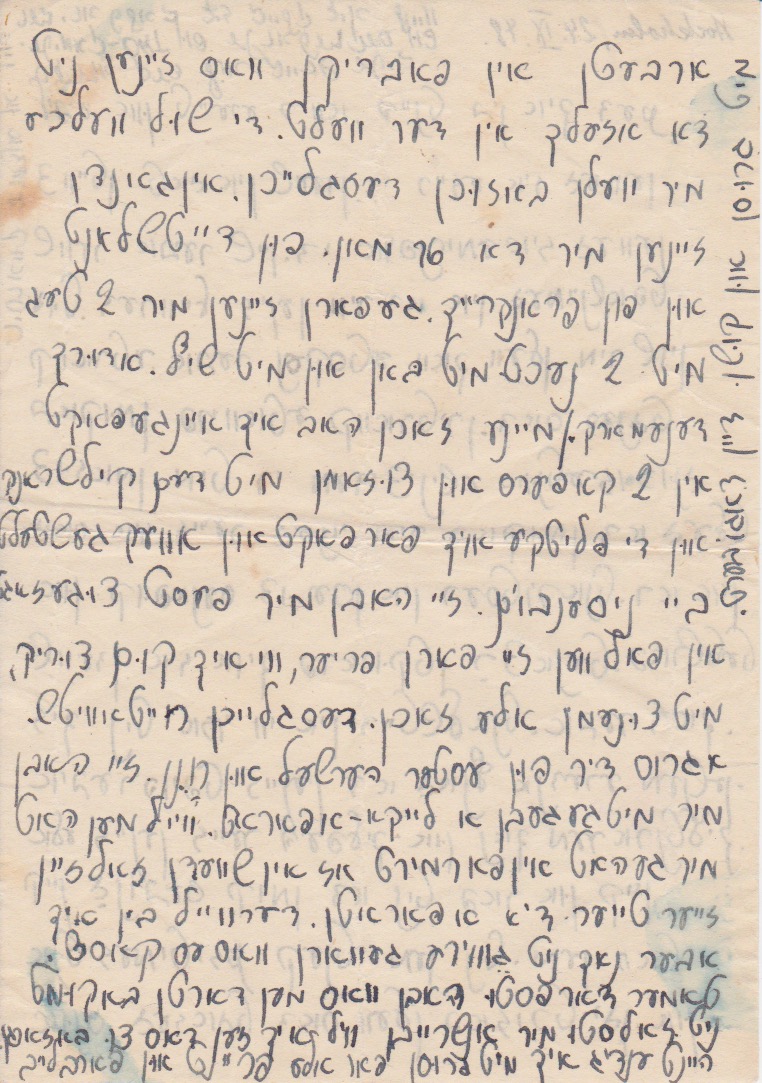 ארבעטן אין פאבריקן וואס זיינען ניט
דא אזעלכע אין דער וועלט. די שול וועלכע
מיר וועלן באזוכן דעסגלייכן. אינגאנצן
זיינען מיר דא מאן. פון דייטשלאנט
און פון פראנקרייך. געפארן זיינען מיר 2 טעג
מיט 2 נעכט מיט באן און מיט שיף. אדורך
דענעמארק. מיינע זאכן האב איך איינגעפאקט
אין 2 קאפערס און צוזאמן מיט דעם קילשראנק
און די פליטקע אויך פארפאקט און אוועק געשטעלט
ביי ניסענבוים. זיי האבן מיר פעסט צוגעזאגט
אין פאל ווען זיי פארן פריער, ווי איך קום צוריק,
מיט צונעמן אלע זאכן. דעסגלייכן
א גרוס דיר פון עסטער הערשעל און זיי האבן
מיר מיטגעגעבן א לייקא-אפאראט. ווייל מען האט
מיר געהאט אינפארמירט אז אין שוועדן זאל זיין
זייער טייער די אפאראטן. דערווייל בין איך
אבער נאך ניט געווארן וואס עס קאסט.
טאמער דארפסטו האבן וואס מען דארטן באקומט
ניט זאלסטו מיר אנשרייבן וועל איך זען דאס צו באזארגן
היינט ענדיג איך מיט גרוסן פאר אלע פריינט און פארבלייב
מיט גרוסן און קושן. דיין